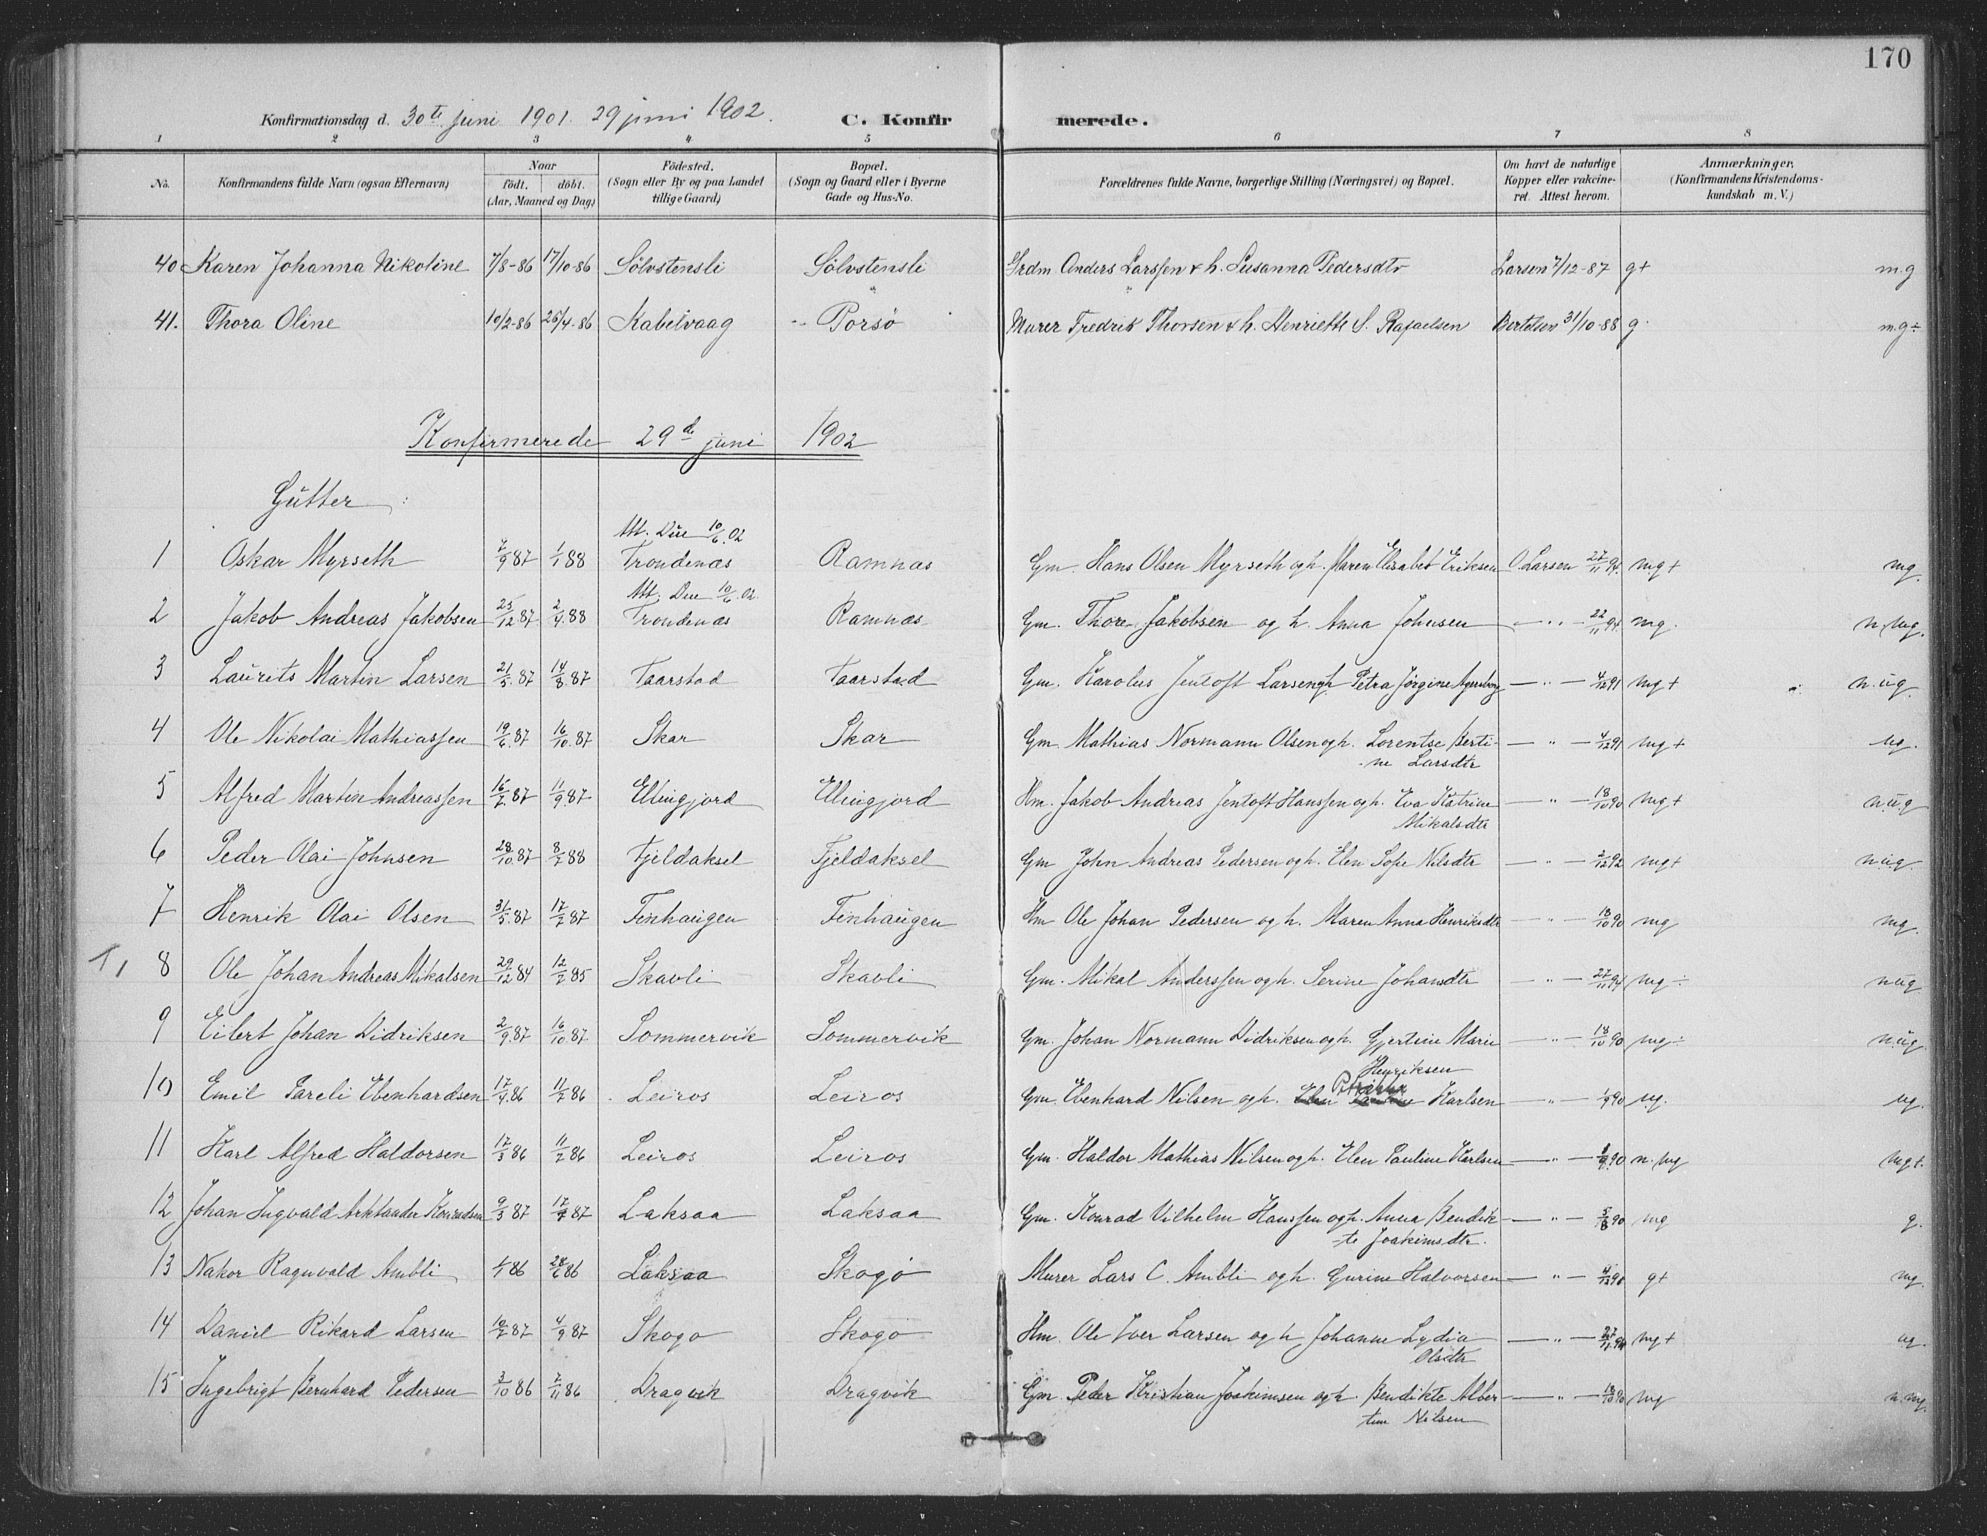 170
Konfirmationsdag d. 30te juni 1901. 29 juni 1902. C. Konfirmerede.
1 2 3 4 5 6 7 8
No. Konfirmandens fulde Navn (ogsaa Efternavn) Naar født. døbt. (Aar, Maaned og Dag) Fødested. (Sogn eller By og paa Landet tillige Gaard) Bopæl. (Sogn og Gaard eller i Byerne Gade og Hus-No. Forældrenes fulde Navne, borgerlige Stilling (Næringsvei) og Bopæl. Om havt de naturlige Kopper eller vakcineret. Attest herom. Anmærkninger. (Konfirmandens Kristendomskundskab m. V.)
40 Karen Johanna Nikoline 7/8-86 17/10-86 Sølvstensli Sølvstensli Grdm Anders Larssen & h. Susanna Pedersdtr Larsen 7/12-87 g+ m.g
41. Thora Oline 10/2-86 26/4-86 Kabelvaag -- Porsø Murer Fredrik Thorsen & h. Henriette S. Rafaelsen Bertelsen 31/10-88 g. m.g÷
Konfirmerede 29d juni 1902
Gutter:
Att. Due 10/6 02
1 Oskar Myrseth 7/9 87 1/1 88 Trondenæs Ramnas Gm. Hans Olsen Myrseth og h. Maren Elisabet Eriksen O. Larsen 27/11 94. mg+ mg.
Att. Due 10/6.02
2 Jakob Andreas Jakobsen 25/12 87 2/4 88 Trondenæs Ramnæs Gm. Thore Jakobsen og h. Anna Johnsen — " — 22/11 94 mg. n.mg.
3 Laurits Martin Larsen 21/5.87 14/8.87 Taarstad Taarstad Gm. Karolus Jentoft Larsen og h. Petra Jørgine — " — 4/12 91 mg+ n.ug.
4 Ole Nikolai Mathiassen 19/6.87 16/10.87 Skar Skar Gm. Mathias Normann Olsen og h. Lorentse Berti- — " — 4/12 91 mg+ ug.
ne Larsdtr
5 Alfred Martin Andreassen 16/7.87 11/9.87 Ellingjord Ellingjord Hm. Jakob Andreas Jentoft Hanssen og h. Eva Katrine — " — 18/10 90 mg+ nug
Mikalsdtr
6 Peder Olai Johnsen 28/10.87 8/2 88 Fjeldaksel Fjeldaksel Gm John Andreas Pedersen og h. Elen Sofie Nilsdtr — " — 2/12 92 mg+ nug.
7 Henrik Olai Olsen 31/5.87 17/7 87 Finhaugen Finhaugen Hm Ole Johan Pedersen og h. Maren Anna Henriksdtr — " — 18/10 90 mg mg.
8 Ole Johan Andreas Mikalsen 29/12 84 12/2 85 Skavli Skavli Gm. Mikal Anderssen og h. Serine Johansdtr — " — 27/11 94 mg÷ nug
9 Eilert Johan Didriksen 2/9.87 16/10.87 Sommervik Sommervik Gm. Johan Normann Didriksen og h. Gjertine Marie — " — 18/10 90 mg÷ nug.
Henriksen
10 Emil Pareli Ebenhardsen 17/4.86 11/7 86 Leiros Leiros Gm. Ebenhard Nilsen og h. Elen Petrikka Karlsen — " — 1/9 90 ug. ug.
11 Karl Alfred Haldorsen 17/3 86 11/7 86 Leiros Leiros Gm. Haldor Mathias Nilsen og h. Elen Pauline Karlsen — " — 90 n.mg mg+.
12 Johan Ingvald Arktander Konradsen 9/3 87 17/7 87 Laksaa Laksaa Gm. Konrad Vilhelm Hanssen og h. Anna Bendik- — " — 5/8 90 mg g.
te Joakimsdtr.
13 Nakor Ragnvald Ambli 86 24/6 86 Laksaa Skogø Murer Lars C. Ambli og h. Gurine Halvorsen — " — 4/12 90 g+ mg.
14 Daniel Rikard Larsen 10/7 87 4/9 87 Skogø Skogø Hm. Ole Iver Larsen og h Johanne Lydia — " — 27/11 94 mg+ ug.
Olsdtr
15 Ingebrigt Bernhard Pedersen 3/10 86 7/11 86 Dragvik Dragvik Gm Peder Kristian Joakimsen og h. Bendikte Alber — " — 18/10 90 mg n.mg.
tine Nilsen